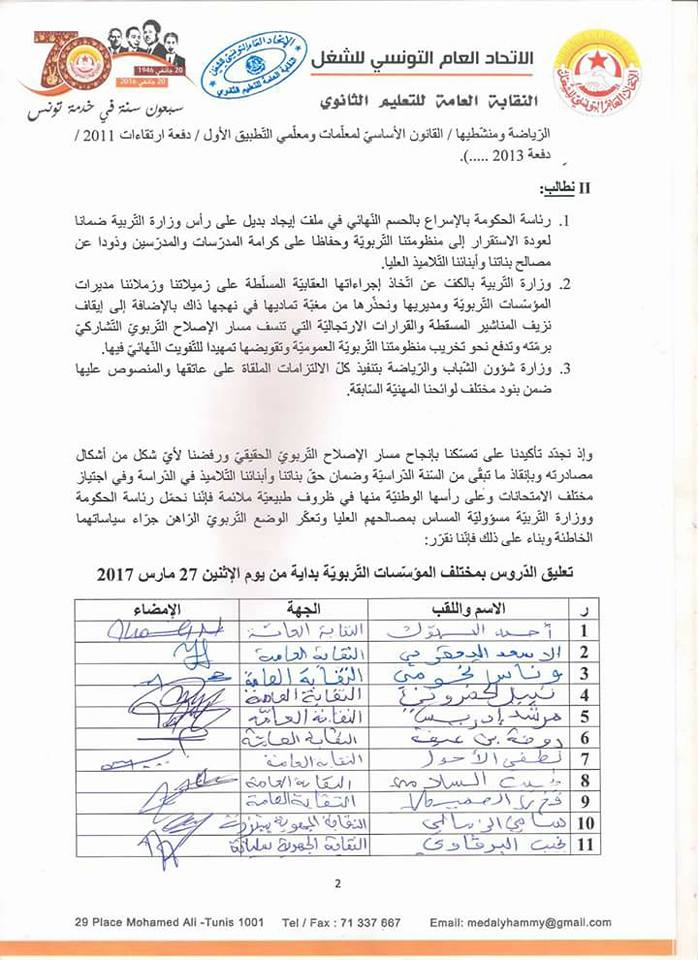 70
20 جانفي 1946
20 جانفي 2016
سبعون سنة في خدمة تونس
الاتحاد العام التونسي للشغل
النقابة العامة للتعليم الثانوي
الرّياضة ومنشّطيها / القانون الأساسيّ لمعلّمات ومعلّمي التّطبيق الأول / دفعة ارتقاءات 2011 /
دفعة 2013 .....).
II نطالب:
1. رئاسة الحكومة بالإسراع بالحسم النّهائي في ملفّ إيجاد بديل على رأس وزارة التّربية ضمانا
لعودة الاستقرار إلى منظومتنا التّربويّة وحفاظا على كرامة المدرّسات والمدرّسين وذودا عن
مصالح بناتنا وأبنائنا التّلاميذ العليا.
2. وزارة التّربية بالكفّ عن اتّخاذ إجراءاتها العقابيّة المسلّطة على زميلاتنا وزملائنا مديرات
المؤسّسات التّربويّة ومديريها ونحذّرها من مغبّة تماديها في نهجها ذاك بالإضافة إلى إيقاف
نزيف المناشير المسقطة والقرارات الارتجاليّة التي تنسف مسار الإصلاح التّربويّ التّشاركيّ
برمّته وتدفع نحو تخريب منظومتنا التّربويّة العموميّة وتقويضها تمهيدا للتّفويت النّهائيّ فيها.
3. وزارة شؤون الشّباب والرّياضة بتنفيذ كلّ الالتزامات الملقاة على عاتقها والمنصوص عليها
ضمن بنود مختلف لوائحنا المهنيّة السّابقة.
وإذ نجدّد تأكيدنا على تمسّكنا بإنجاح مسار الإصلاح التّربويّ الحقيقيّ ورفضنا لأيّ شكل من أشكال
مصادرته وبإنقاذ ما تبقّى من السّنة الدّراسيّة وضمان حقّ بناتنا وأبنائنا التّلاميذ في الدّراسة وفي اجتياز
مختلف الامتحانات وعلى رأسها الوطنيّة منها في ظروف طبيعيّة ملائمة فإنّنا نحمّل رئاسة الحكومة
ووزارة التّربية مسؤوليّة المساس بمصالحهم العليا وتعكّر الوضع التّربويّ الرّاهن جرّاء سياساتهما
الخاطئة وبناء على ذلك فإنّنا نقرّر:
تعليق الدّروس بمختلف المؤسّسات التّربويّة بداية من يوم الإثنين 27 مارس 2017
ر الاسم واللقب الجهة الإمضاء
1 أحمد النقابة العامة
2 الأسعد النقابة العامة
3 وناس النقابة العامة
4 نبيل النقابة العامة
5 مرشد إدريس النقابة العامة
6 روضة بن النقابة العامة
7 لطفي الأحول النقابة العامة
8 السلامي النقابة العامة
9 فخري النقابة العامة
10 سامي النقابة الجهوية ببنزرت
11 نجيب النقابة الجهوية
2
29 Place Mohamed Ali -Tunis 1001 Tel / Fax : 71 337 667 Email: medalyhammy@gmail.com